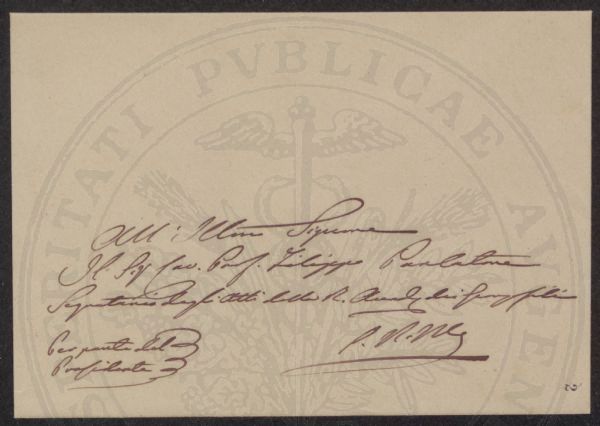 PROSPERITATI PVBLICAE AVGENDAE
All' Illmo Signore
Il Sig Cav. Prof. Filippo Parlatore
Segretario degli Atti della R. Accad dei Georgofili
Per parte del
Presidente
2